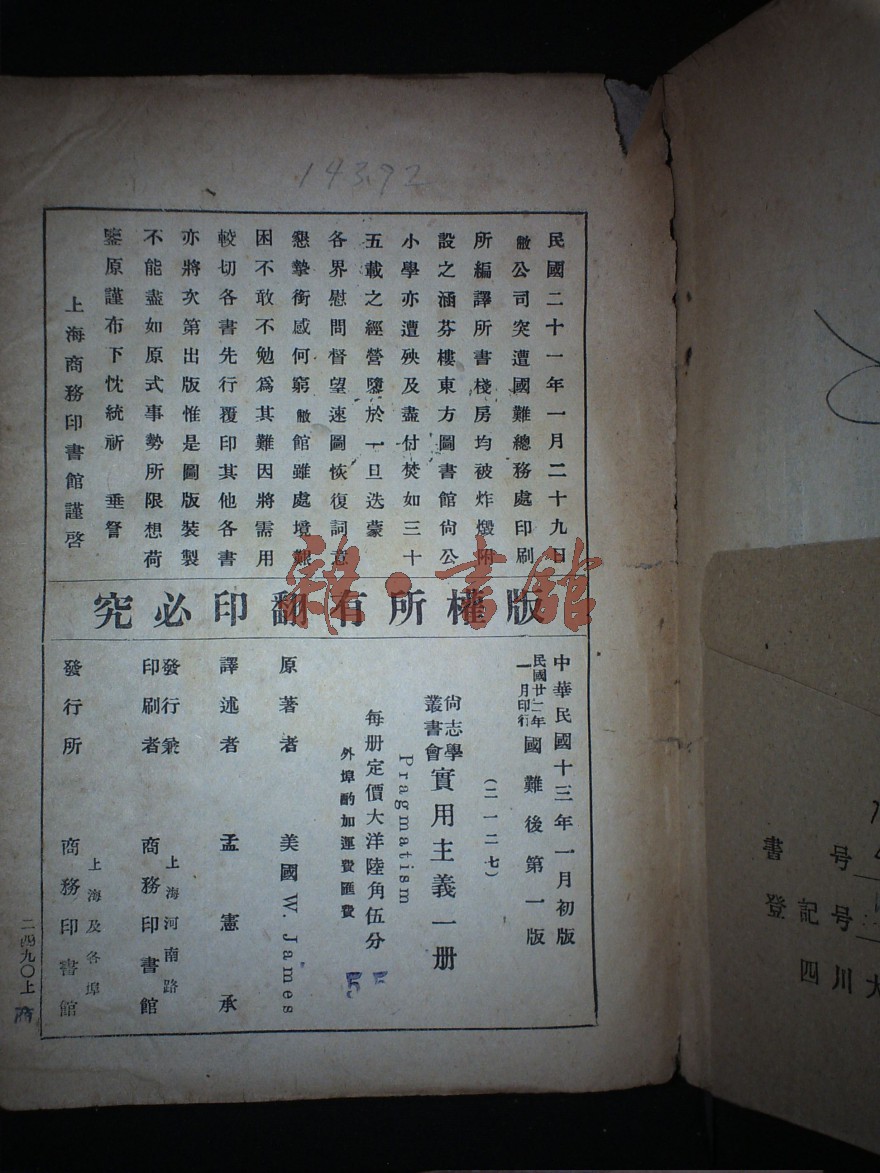 143.92
民國二十一年一月二十九日
敝公司突遭國難總務處印刷
所編譯所書棧房均被炸燬附
設之涵芬樓東方圖書館尙公
小學亦遭殃及盡付焚如三十
五載之經營隳於一旦迭蒙
各界慰問督望速圖恢復詞意
懇摯銜感何窮敝館雖處境艱
困不敢不勉爲其難因將需用
較切各書先行覆印其他各書
亦將次第出版惟是圖版裝製
不能盡如原式事勢所限想荷
鑒原謹布下忱統祈 垂詧
上海商務印書館謹啓
究必印翻有所權版
雜·書館
中華民國十三年一月初版
民國廿二年
一月印行
國難後第一版
(二一二七)
尙志學
叢書會
實用主義一册
Pragmatism
每册定價大洋陸角伍分
外埠酌加運費匯費
55
原著者 美國W. James
譯述者 孟憲承
發行兼
印刷者
上海河南路
商務印書館
發行所
上海及各埠
商務印書館
二四九〇上
書號
登記号
四川大